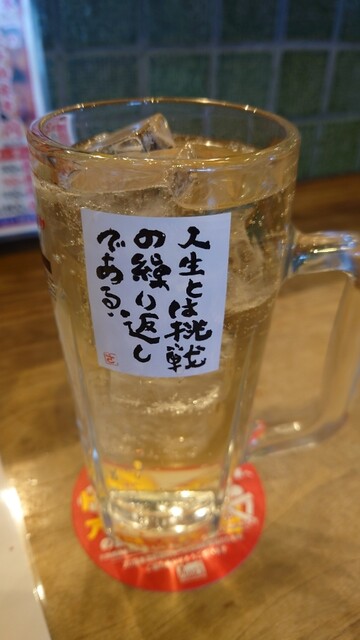 人生とは挑戦
の繰り返し
である。